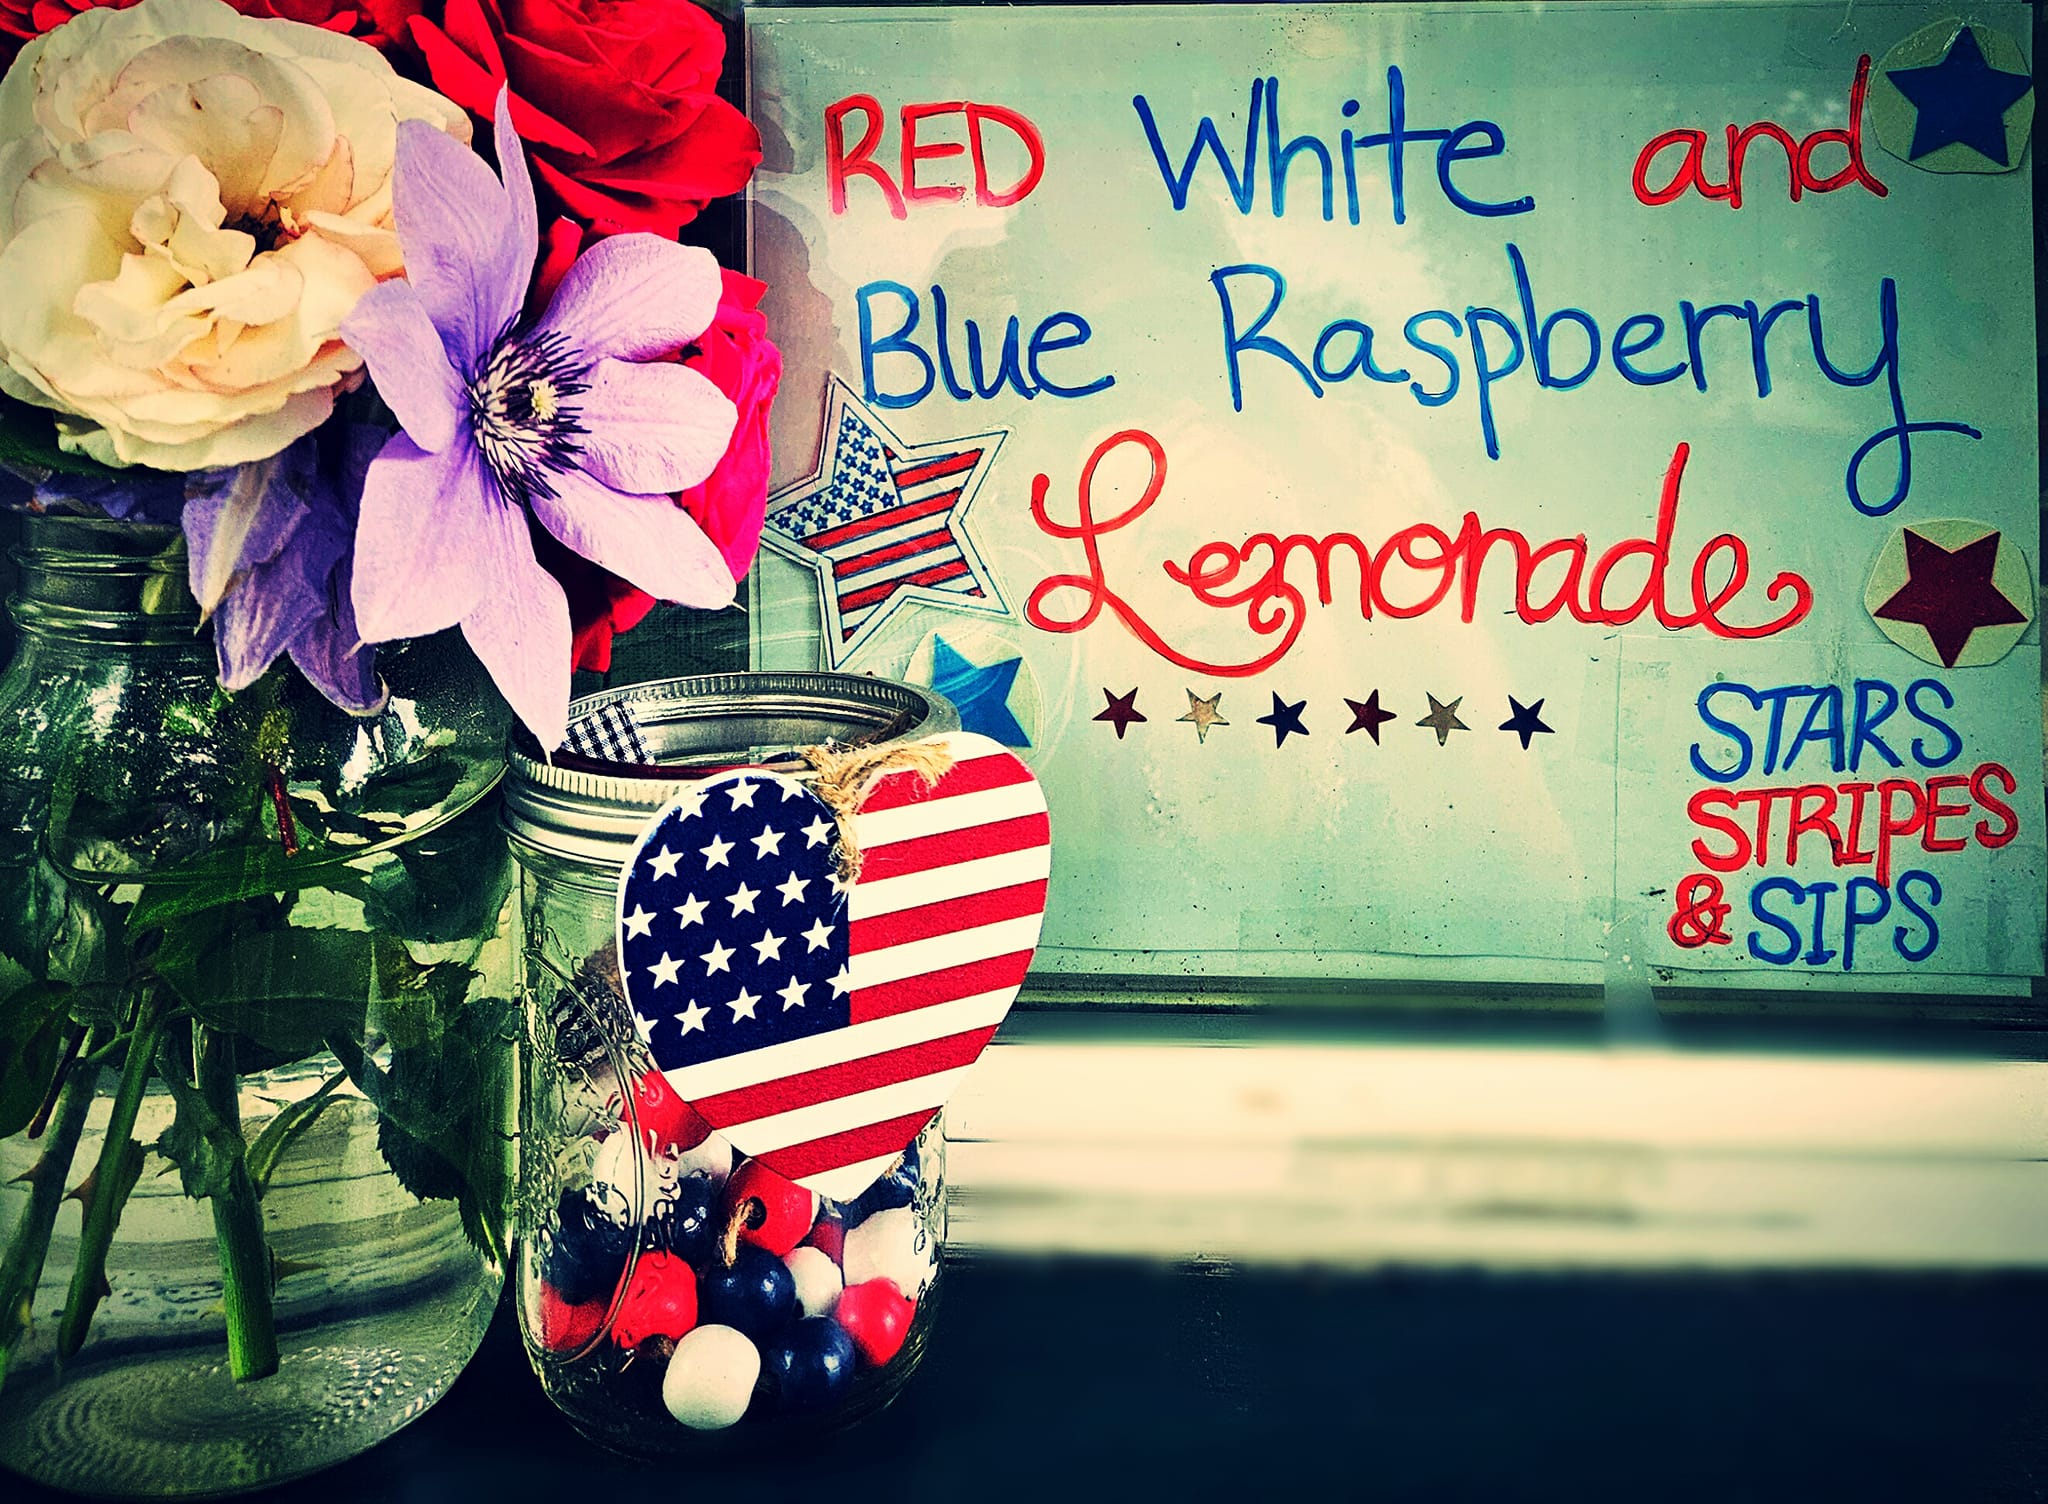 RED White and
Blue Raspberry
Lemonade
STARS
STRIPES
& SIPS